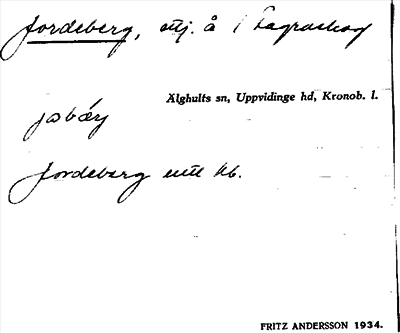 Jordeberg, utj. å 1 Fagraskog
Älghults sn, Uppvidinge hd, Kronob. l.
Jordeberg enl kb.
FRITZ ANDERSSON 1934.